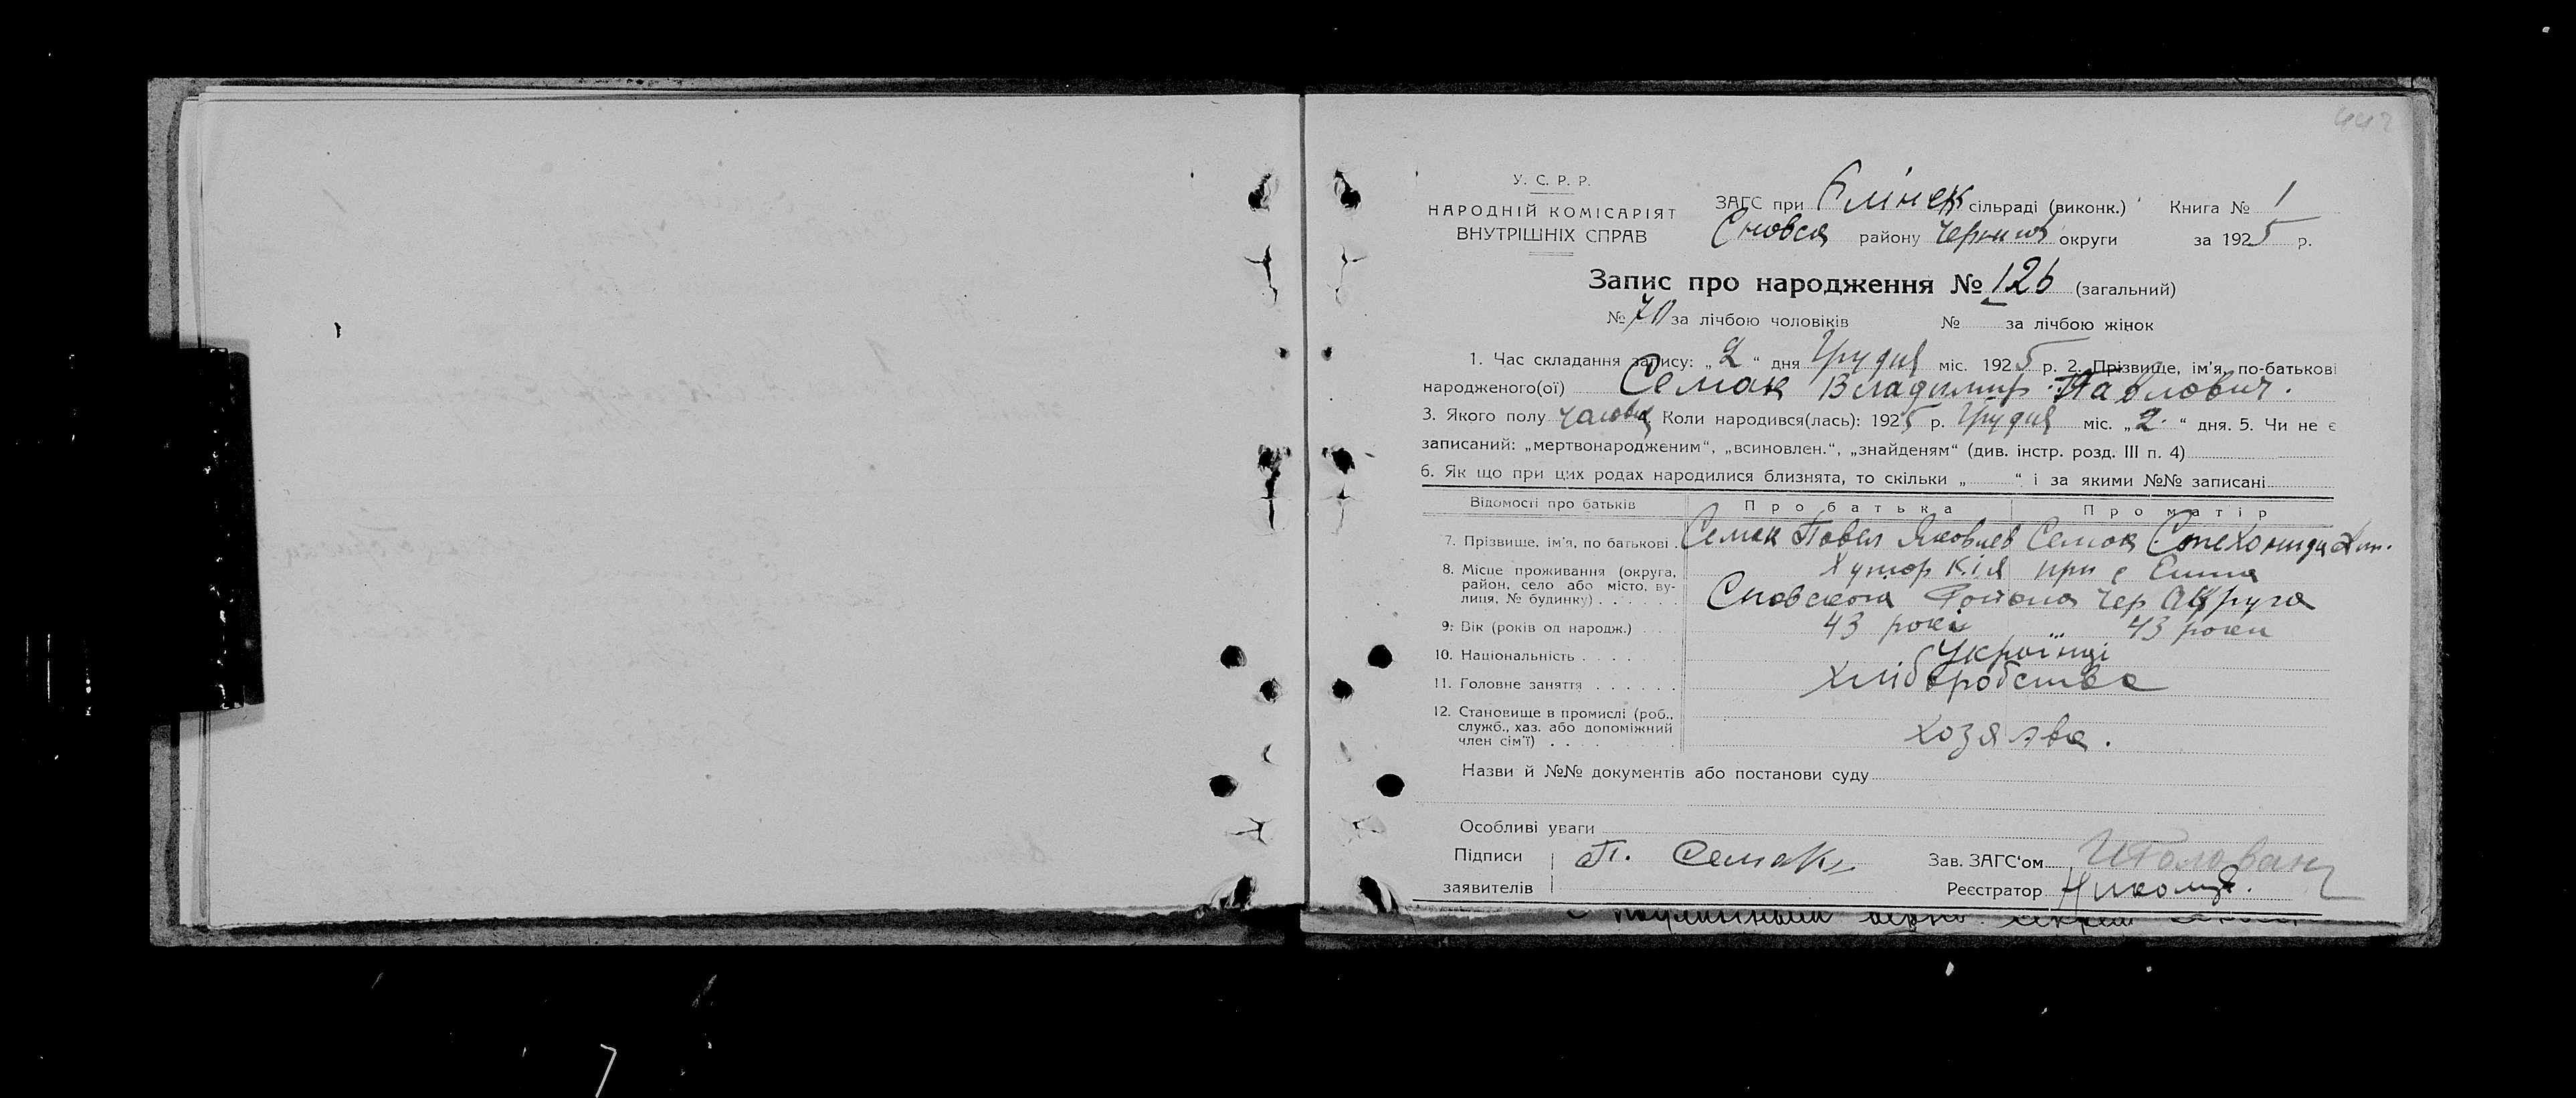 442
У. С. Р. Р.
НАРОДНІЙ КОМІСАРІЯТ
ВНУТРІШНІХ СПРАВ
ЗАГС при Єлінск сільраді (виконк.) Книга № 1
Сновск району Черниг округи за 1925 р.
Запис про народження № 126 (загальний)
№ 70 за лічбою чоловіків № за лічбою жінок
1. Час складання запису: „2“ дня Грудня міс. 1925 р. 2. Прізвище, ім'я, по-батькові
народженого(ої) Семак Владимир Павлович.
3. Якого полу чаловік Коли народився(лась): 1925 р. Грудня міс. „2.“ дня. 5. Чи не є
записаний: „мертвонародженим“, „всиновлен.“, „знайденям“ (див. інстр. розд. III п. 4)
6. Як що при цих родах народилися близнята, то скільки „ “ і за якими №№ записані
Відомості про батьків Про батька Про матір
7. Прізвище, ім'я, по батькові Семак Павел Яковлев Семак
8. Місце проживання (округа, район, село або місто, вулиця, № будинку) Хутор при с
Сновского Чер
9. Вік (років од народж.) 43 роки 43 роки
10. Національність Українці
11. Головне заняття хліборобства
12. Становище в промислі (роб., служб., хаз. або допоміжний член сім'ї) хозяэва.
Назви й №№ документів або постанови суду
Особливі уваги
Підписи П. Семак Зав. ЗАГС'ом
заявителів Реєстратор